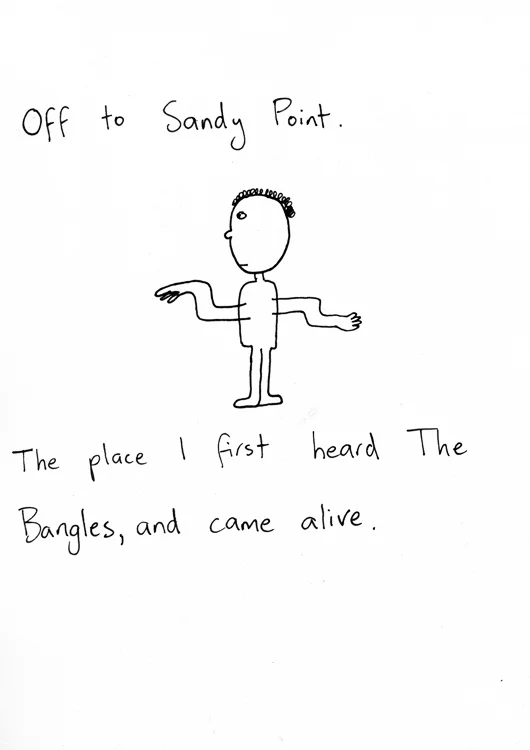 Off to Sandy Point.
The place I first heard The
Bangles, and came alive.